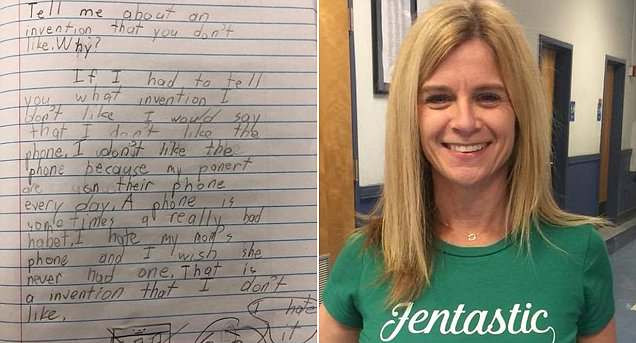 Tell me about an
invention that you don't
like. Why?
If I had to tell
you what invention I
don't like I would say
that I don't like the
phone. I don't like the
phone because my panert
are on their phone
every day. A phone is
sometimes a really bad
habet. I hate my mom's
phone and I wish she
never had one. That is
a invention that I don't
like. I hate
it
Jentastic